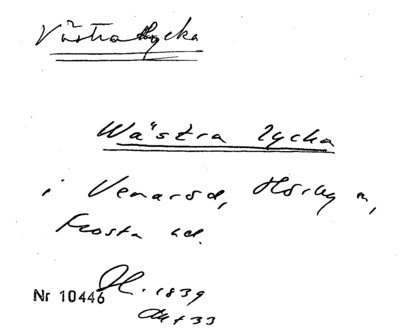 Västra Lycka
Wästra Lycka
i Venaröd, Hörby sn,
Frosta hd.
Nr 10446 1839